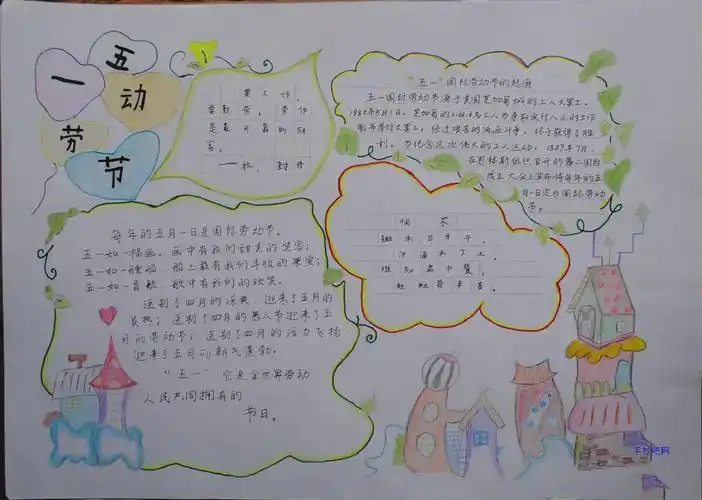 五一
劳动节
要工作，
要勤劳，劳作
是最可靠的财
富。
——拉，封丹
"五一"国际劳动节的起源
五一国际劳动节源于美国芝加哥城的工人大罢工。
1886年5月1日，芝加哥的工人为争取实行八小时工作
制而举行大罢工，经过艰苦的流血斗争，终于获得了胜
利。为纪念这次伟大的工人运动，1889年7月，
在恩格斯组织召开的第二国际
成立大会上宣布将每年的五
月一日定为国际劳动
节。
悯农
锄禾日当午，
汗滴禾下土。
谁知盘中餐，
粒粒皆辛苦。
每年的五月一日是国际劳动节。
五一如一幅画，画中有我们甜美的笑容；
五一如一艘船，船上载有我们丰收的果实；
五一如一首歌，歌中有我们的欢笑。
送别了四月的凉爽，迎来了五月的
炎热；送别了四月的愚人节迎来了五
月的劳动节；送别了四月的活力飞扬
迎来了五月的朝气蓬勃。
"五一"它是全世界劳动
人民共同拥有的
节日。
手抄吧网